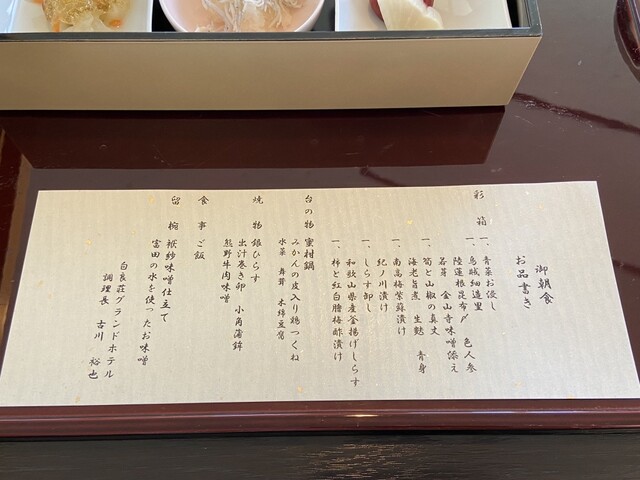 御朝食
お品書き
彩箱
一、青菜お浸し
一、烏賊細造里 色人参
陸蓮根昆布〆
若芽 金山寺味噌添え
一、筍と山椒の真丈
海老旨煮 生麩 青身
一、南高梅紫蘇漬け
紀ノ川漬け
一、しらす卸し
和歌山県産釜揚げしらす
一、柿と紅白膾梅酢漬け
台の物 蜜村鍋
みかんの皮入り鶏つくね
水菜 舞茸 木綿豆腐
焼物 銀ひらす
出汁巻き卵 小角蒲鉾
熊野牛肉味噌
食事 ご飯
留椀 袱紗味噌仕立て
富田の水を使ったお味噌
白良荘グランドホテル
調理長 古川 裕也